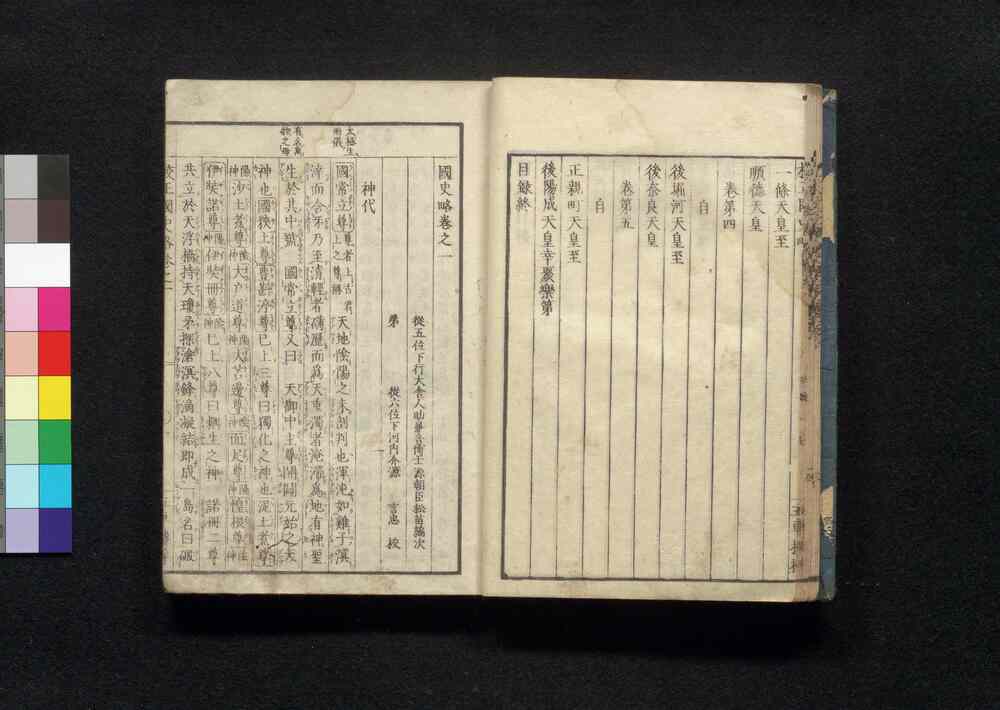 一條天皇至
順德天皇
卷第四
自
後堀河天皇至
後奈良天皇
卷第五
自
正親町天皇至
後陽成天皇幸聚樂第
目録終
太極生
兩儀
有名萬
物之母
國史略卷之一
從五位下行大舍人助兼音博士源朝臣松苗編次
弟 從六位下河内介源 言忠 挍
神代
國常立尊 天地陰陽之未剖判也渾沌如雞子溟
涬而含牙乃至清輕者礴靡而爲天重濁者淹滯爲地有神聖
生於其中號 國常立尊又曰 天御中主尊開闢元始之
神也國狹土尊豊斟渟尊已上三尊曰獨化之神也泥土煑尊
沙土煑尊 大戸道尊 大苫邊尊 面足尊 惶根尊
伊弉諾尊 伊弉冊尊 已上八尊曰耦生之神 諾冊二尊
共立於天浮橋持天瓊矛探滄溟鋒滴凝結即成一島名曰磤
校正國史略卷之一